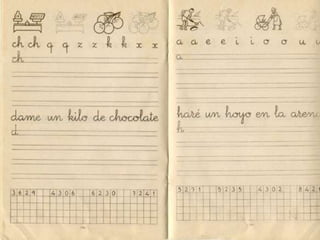 ch ch q q z z k k x x
ch
dame un kilo de chocolate
d
3629 4306 6230 7241
a a e e i i o o u u
a
haré un hoyo en la arena
h
5271 5235 4302